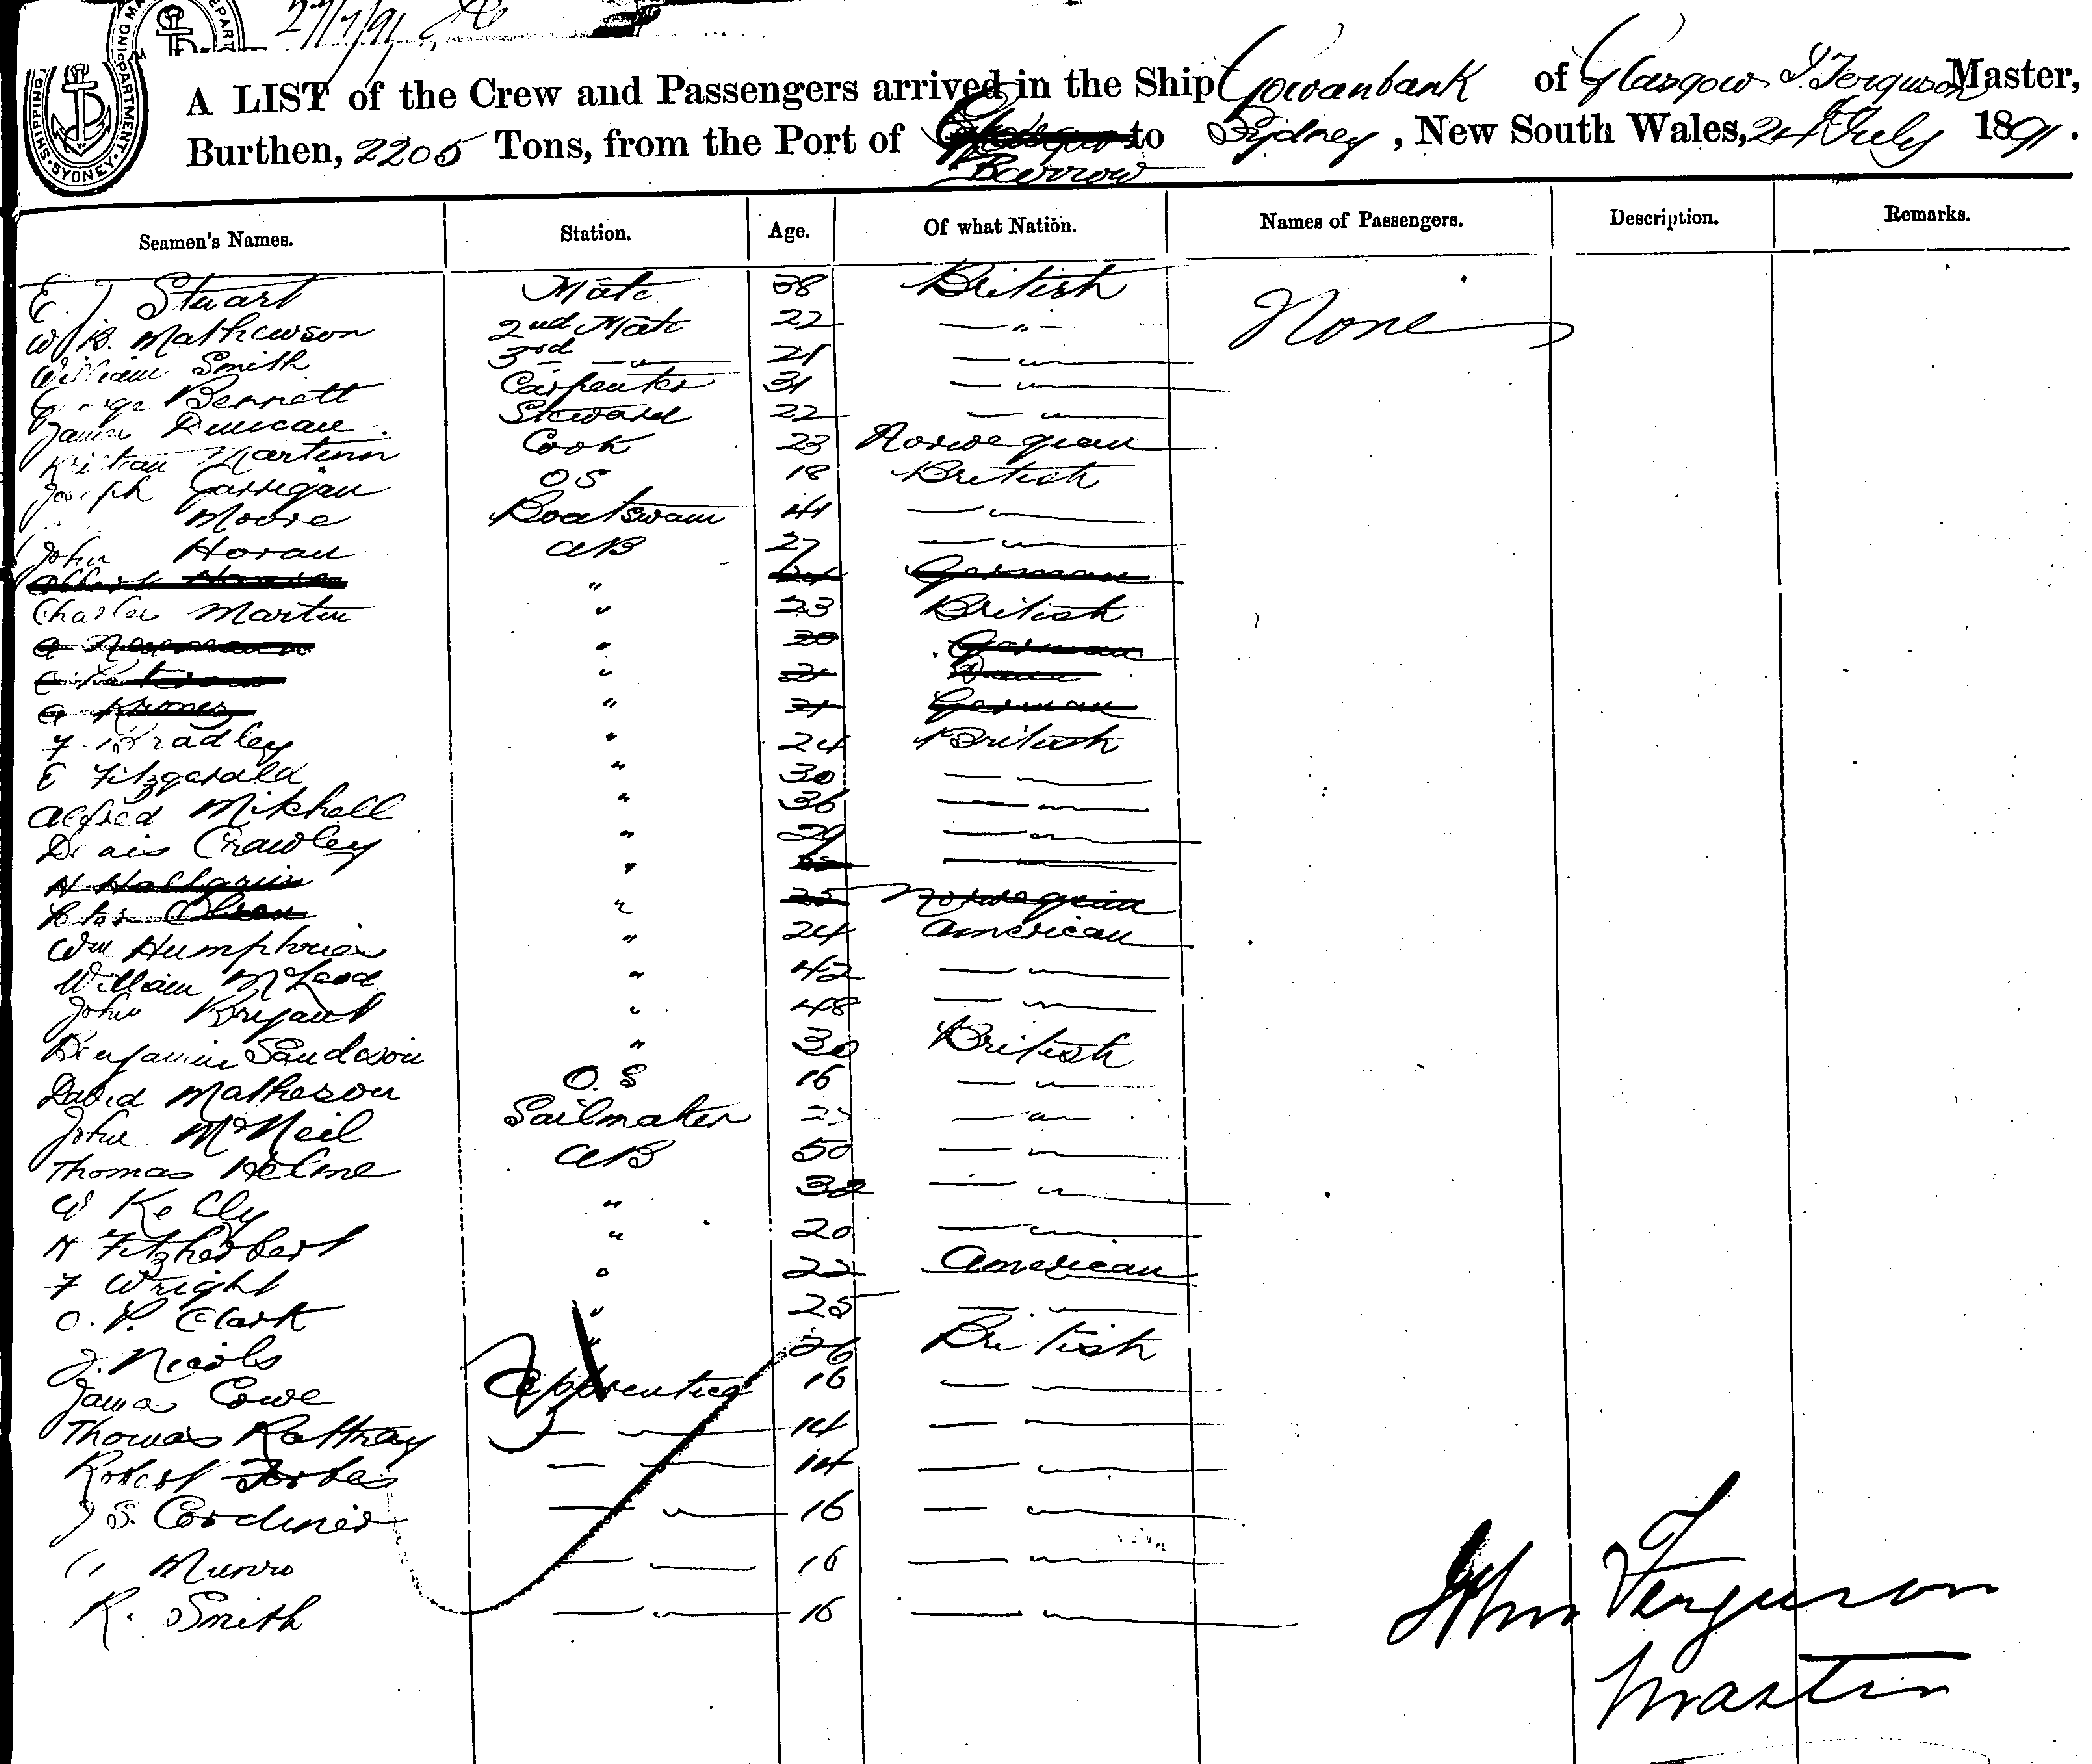 27/7/91
SHIPPING MA DEPART
SHIPPING DEPARTMENT SYDNEY
A LIST of the Crew and Passengers arrived in the Ship Gowanbank of Glasgow J. Ferguson Master,
Burthen, 2205 Tons, from the Port of Glasgow to Sydney, New South Wales, 24 July 1891.
Barrow
Seamen's Names. Station. Age. Of what Nation. Names of Passengers. Description. Remarks.
E. J Stuart Mate 38 British None
W B. Mathewson 2nd Mate 22 — " —
William Smith 3rd — " 21 — "
George Bennett Carpenter 31 — "
James Duncan Steward 22 — "
Kristian Martinn Cook 23 Norwegian
Joseph Garrigan OS 18 British
Moore Boatswain 41 — "
John Horan AB 27 — "
" German
Charles Martin " 23 British
" 20 German
" 21
G Krones " 21 German
F. Bradley " 24 British
E Fitzgerald " 30 — "
Alfred Mitchell " 36 — "
Denis Crawley " 29 — "
H "
Peter Olsen " 25 Norwegian
Wm Humphries " 24 American
William McLeod " 42 — "
John Bryant " 48 — "
Benjamin Sandeson " 30 British
David Matheson O.S 16 — "
John McNeil Sailmaker — "
Thomas Helme AB 50 — "
W Kelly " — "
H Fitzherbert " 20 — "
F Wright " 22 American
O. P. Clark " 25 — "
J. Nicols " 26 British
James Cowe Apprentice 16 — "
Thomas Rattray — " 14 — "
Robert Forbes — " 14 — "
J S. Cordiner — " 16 — "
Munro — " 16 — "
R. Smith — " 16 — "
John Ferguson
Master